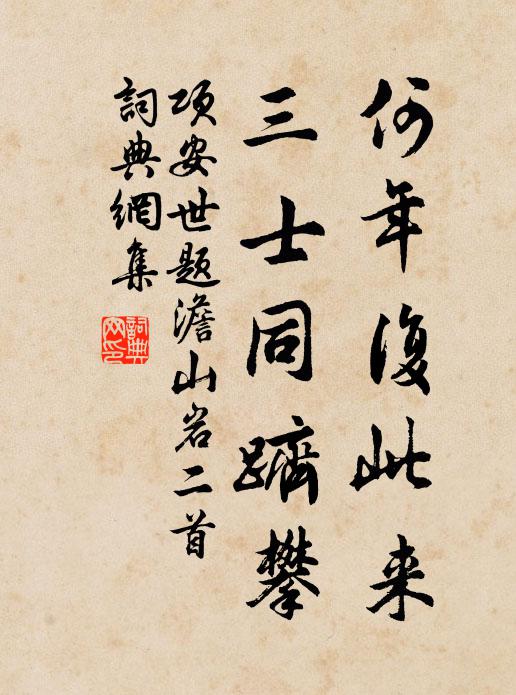 何年復此来
三士同躋攀
项安世题澹山岩二首
詞典網集
詞典网印